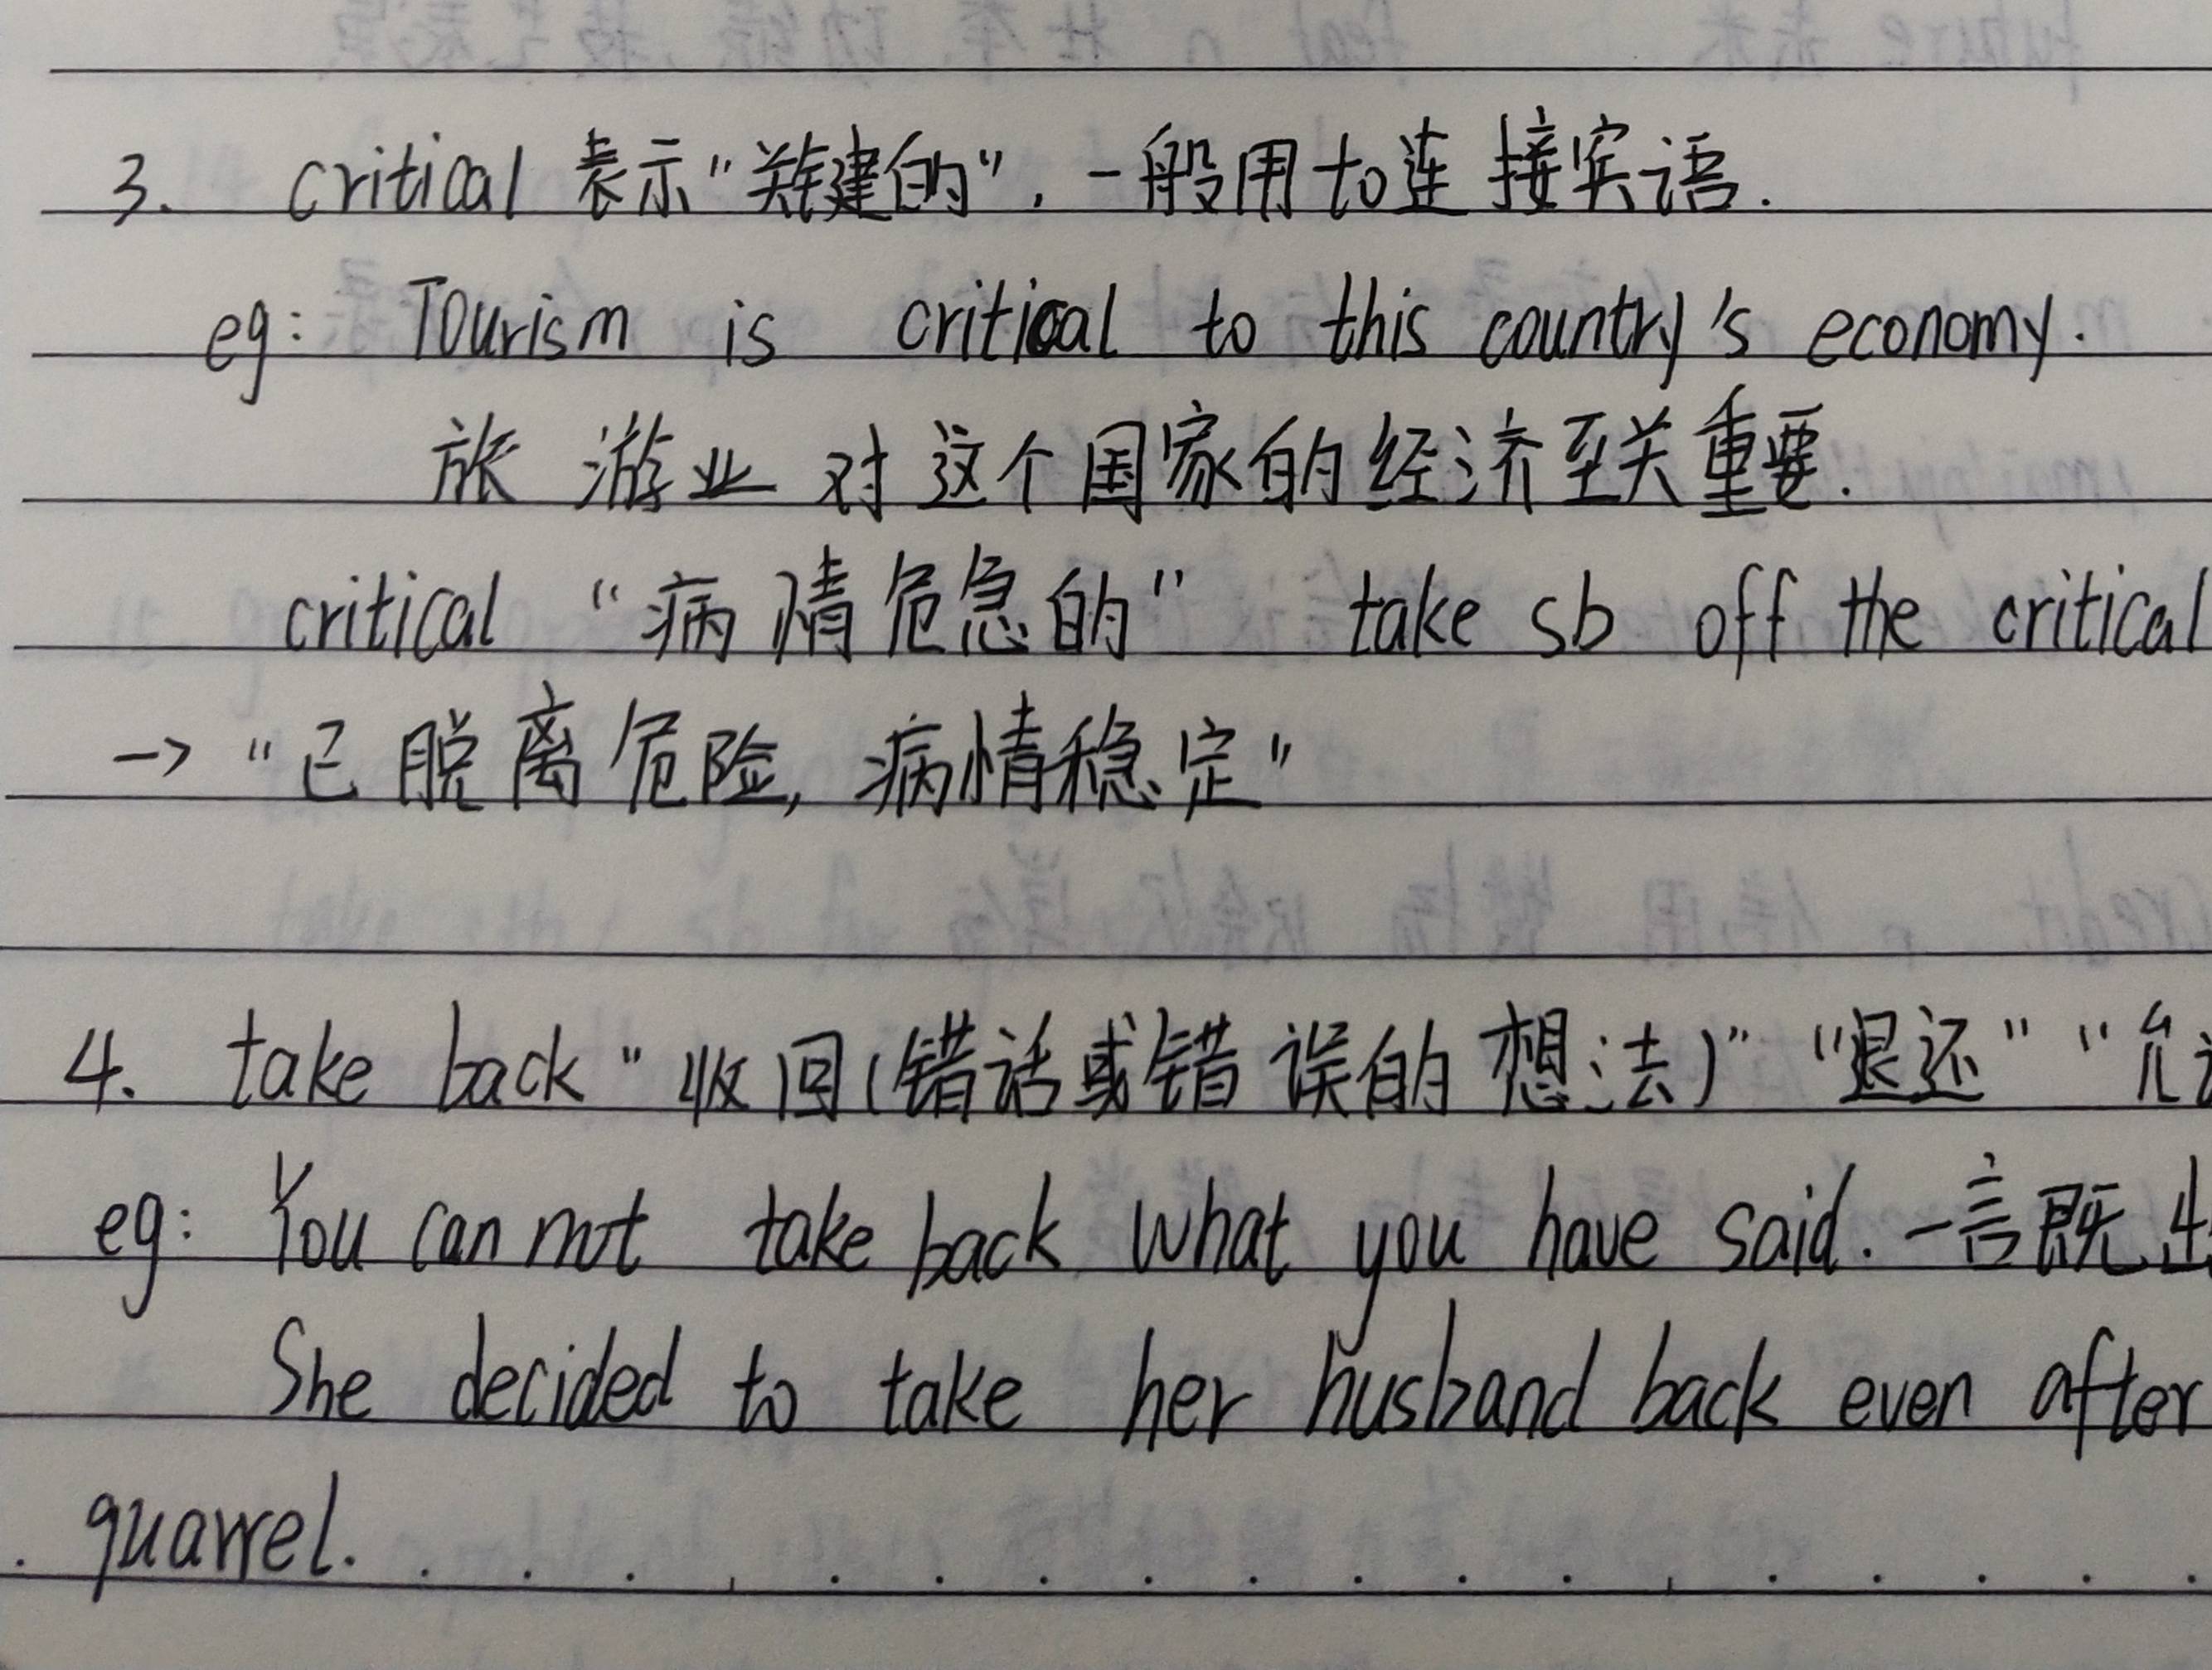 3. critical 表示"关键的", 一般用to连接宾语.
eg: Tourism is critical to this country's economy.
旅游业对这个国家的经济至关重要.
critical "病情危急的" take sb off the critical
→ "已脱离危险, 病情稳定"
4. take back "收回(错话或错误的想法)" "退还" "允
eg: You can not take back what you have said. 一言既出
She decided to take her husband back even after
quarrel.